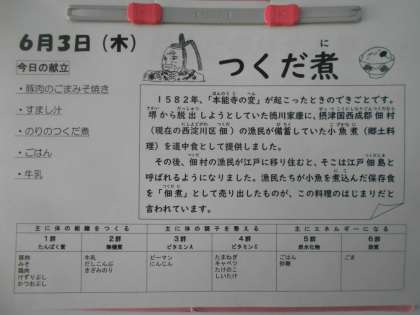 6月3日（木）
つくだ煮
に
今日の献立
・豚肉のごまみそ焼き
・すまし汁
・のりのつくだ煮
・ごはん
・牛乳
1582年、「本能寺の変」が起こったときのできごとです。
堺から脱出しようとしていた徳川家康に、摂津国西成郡佃村
（現在の西淀川区佃）の漁民が備蓄していた小魚煮（郷土料
理）を道中食として提供しました。
その後、佃村の漁民が江戸に移り住むと、そこは江戸佃島と
呼ばれるようになりました。漁民たちが小魚を煮込んだ保存食
を「佃煮」として売り出したものが、この料理のはじまりだと
言われています。
主に体の組織をつくる
主に体の調子を整える
主にエネルギーになる
1群
たんぱく質
2群
無機質
3群
ビタミンA
4群
ビタミンC
5群
炭水化物
6群
脂質
豚肉
みそ
鶏肉
けずりぶし
かつおぶし
牛乳
だしこんぶ
きざみのり
ピーマン
にんじん
たまねぎ
キャベツ
たけのこ
しいたけ
ごはん
砂糖
ごま